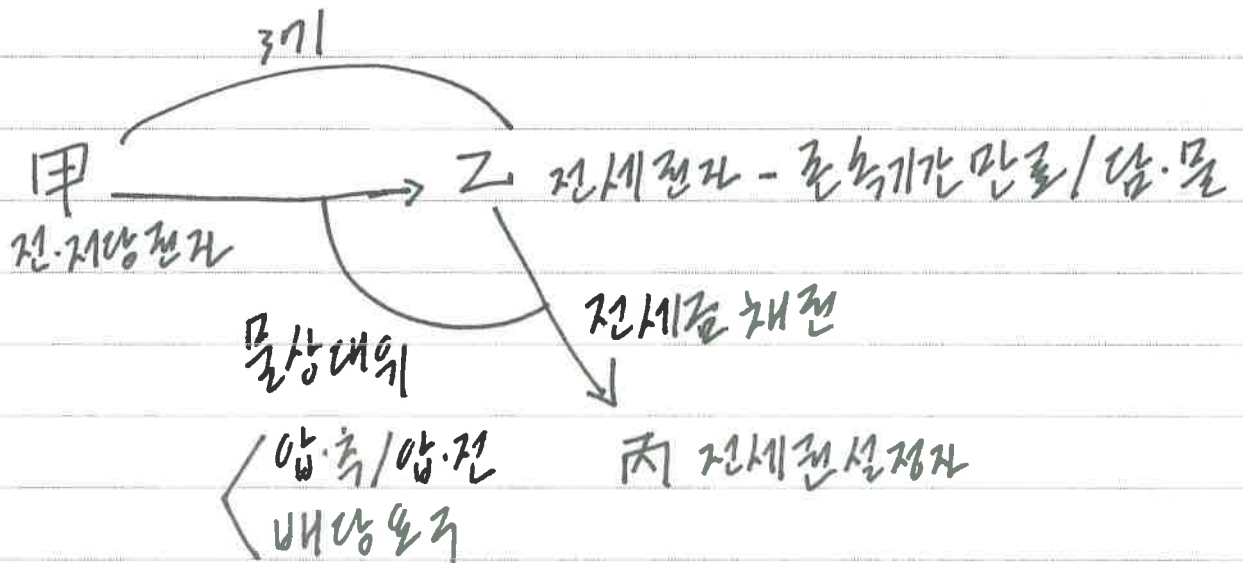 3기
甲 乙 전세권자 - 존속기간만료/담·물
전·저당권자
전세금 채권
물상대위
압·추/압·전 丙 전세권설정자
배당요구